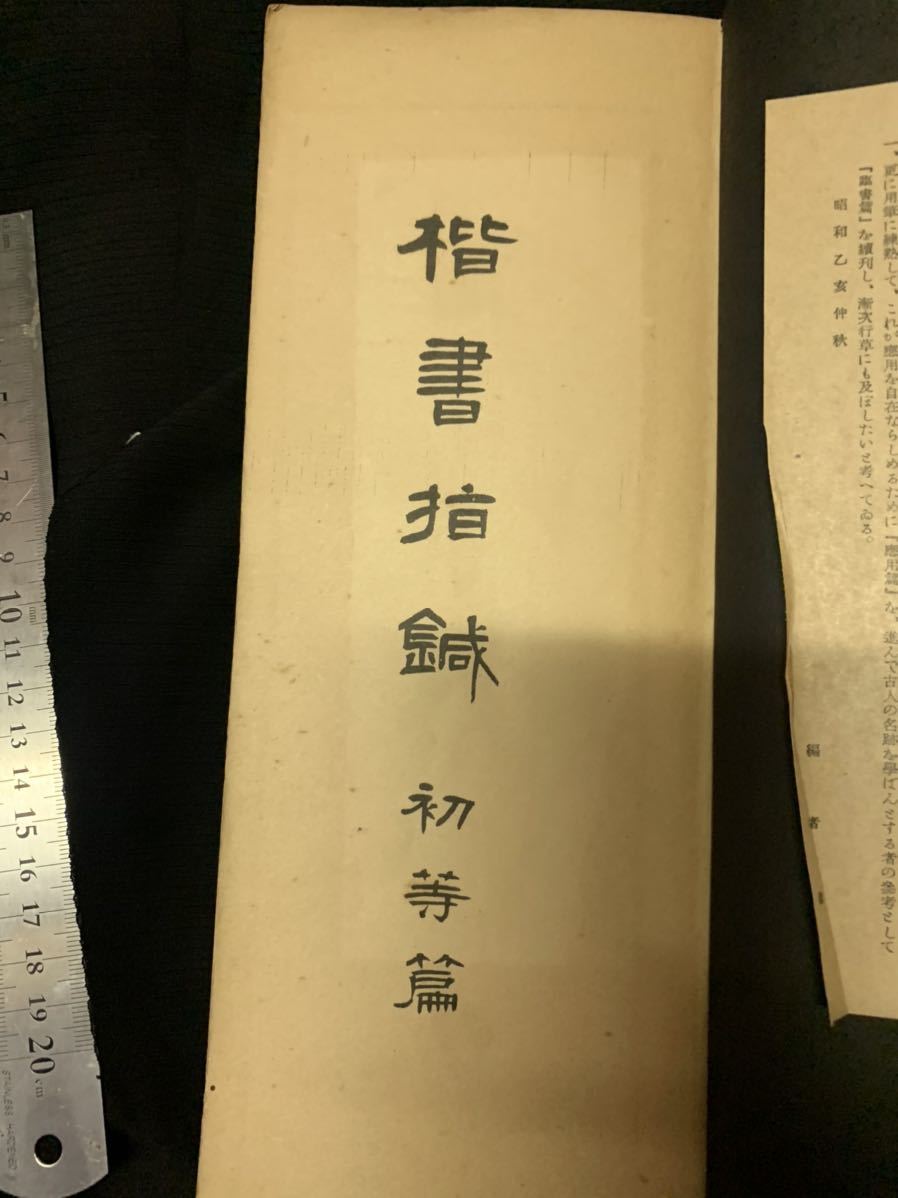 楷書指鍼 初等篇
一、更に用筆に練熟して、これが應用を自在ならしめるために『應用篇』を、進んで古人の名跡を學ばんとする者の參考として
『臨書篇』を續刊し、漸次行草にも及ぼしたいと考へてゐる。
昭和乙亥仲秋
編者
5
6
7
8
9
10
11
12
13
14
15
16
17
18
19
20 cm
mm
STAINLESS HARDENED